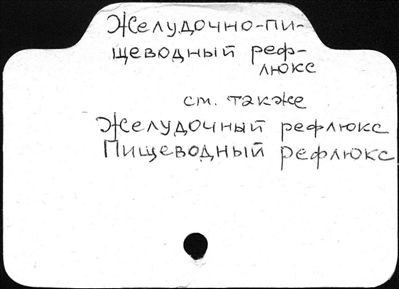 Желудочно-пи-
щеводный реф-
люкс
см. также
Желудочный рефлюкс
Пищеводный рефлюкс